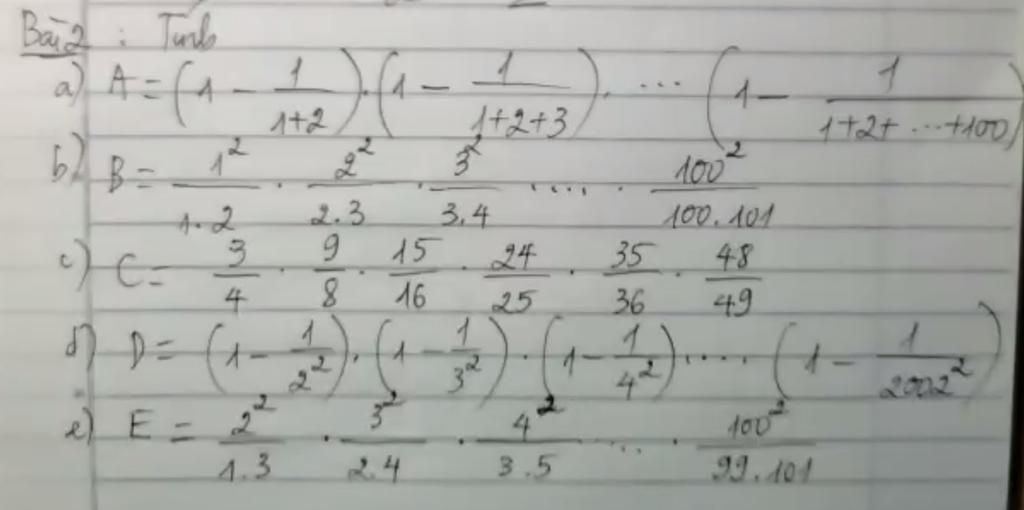 Bài 2 : Tính
a) A = (1 - 1/(1+2)) . (1 - 1/(1+2+3)) . ... (1 - 1/(1+2+...+100))
b) B = 1²/(1.2) . 2²/(2.3) . 3²/(3.4) ..... 100²/(100.101)
c) C = 3/4 . 9/8 . 15/16 . 24/25 . 35/36 . 48/49
d) D = (1 - 1/2²) . (1 - 1/3²) . (1 - 1/4²) ..... (1 - 1/2002²)
e) E = 2²/(1.3) . 3²/(2.4) . 4²/(3.5) ..... 100²/(99.101)